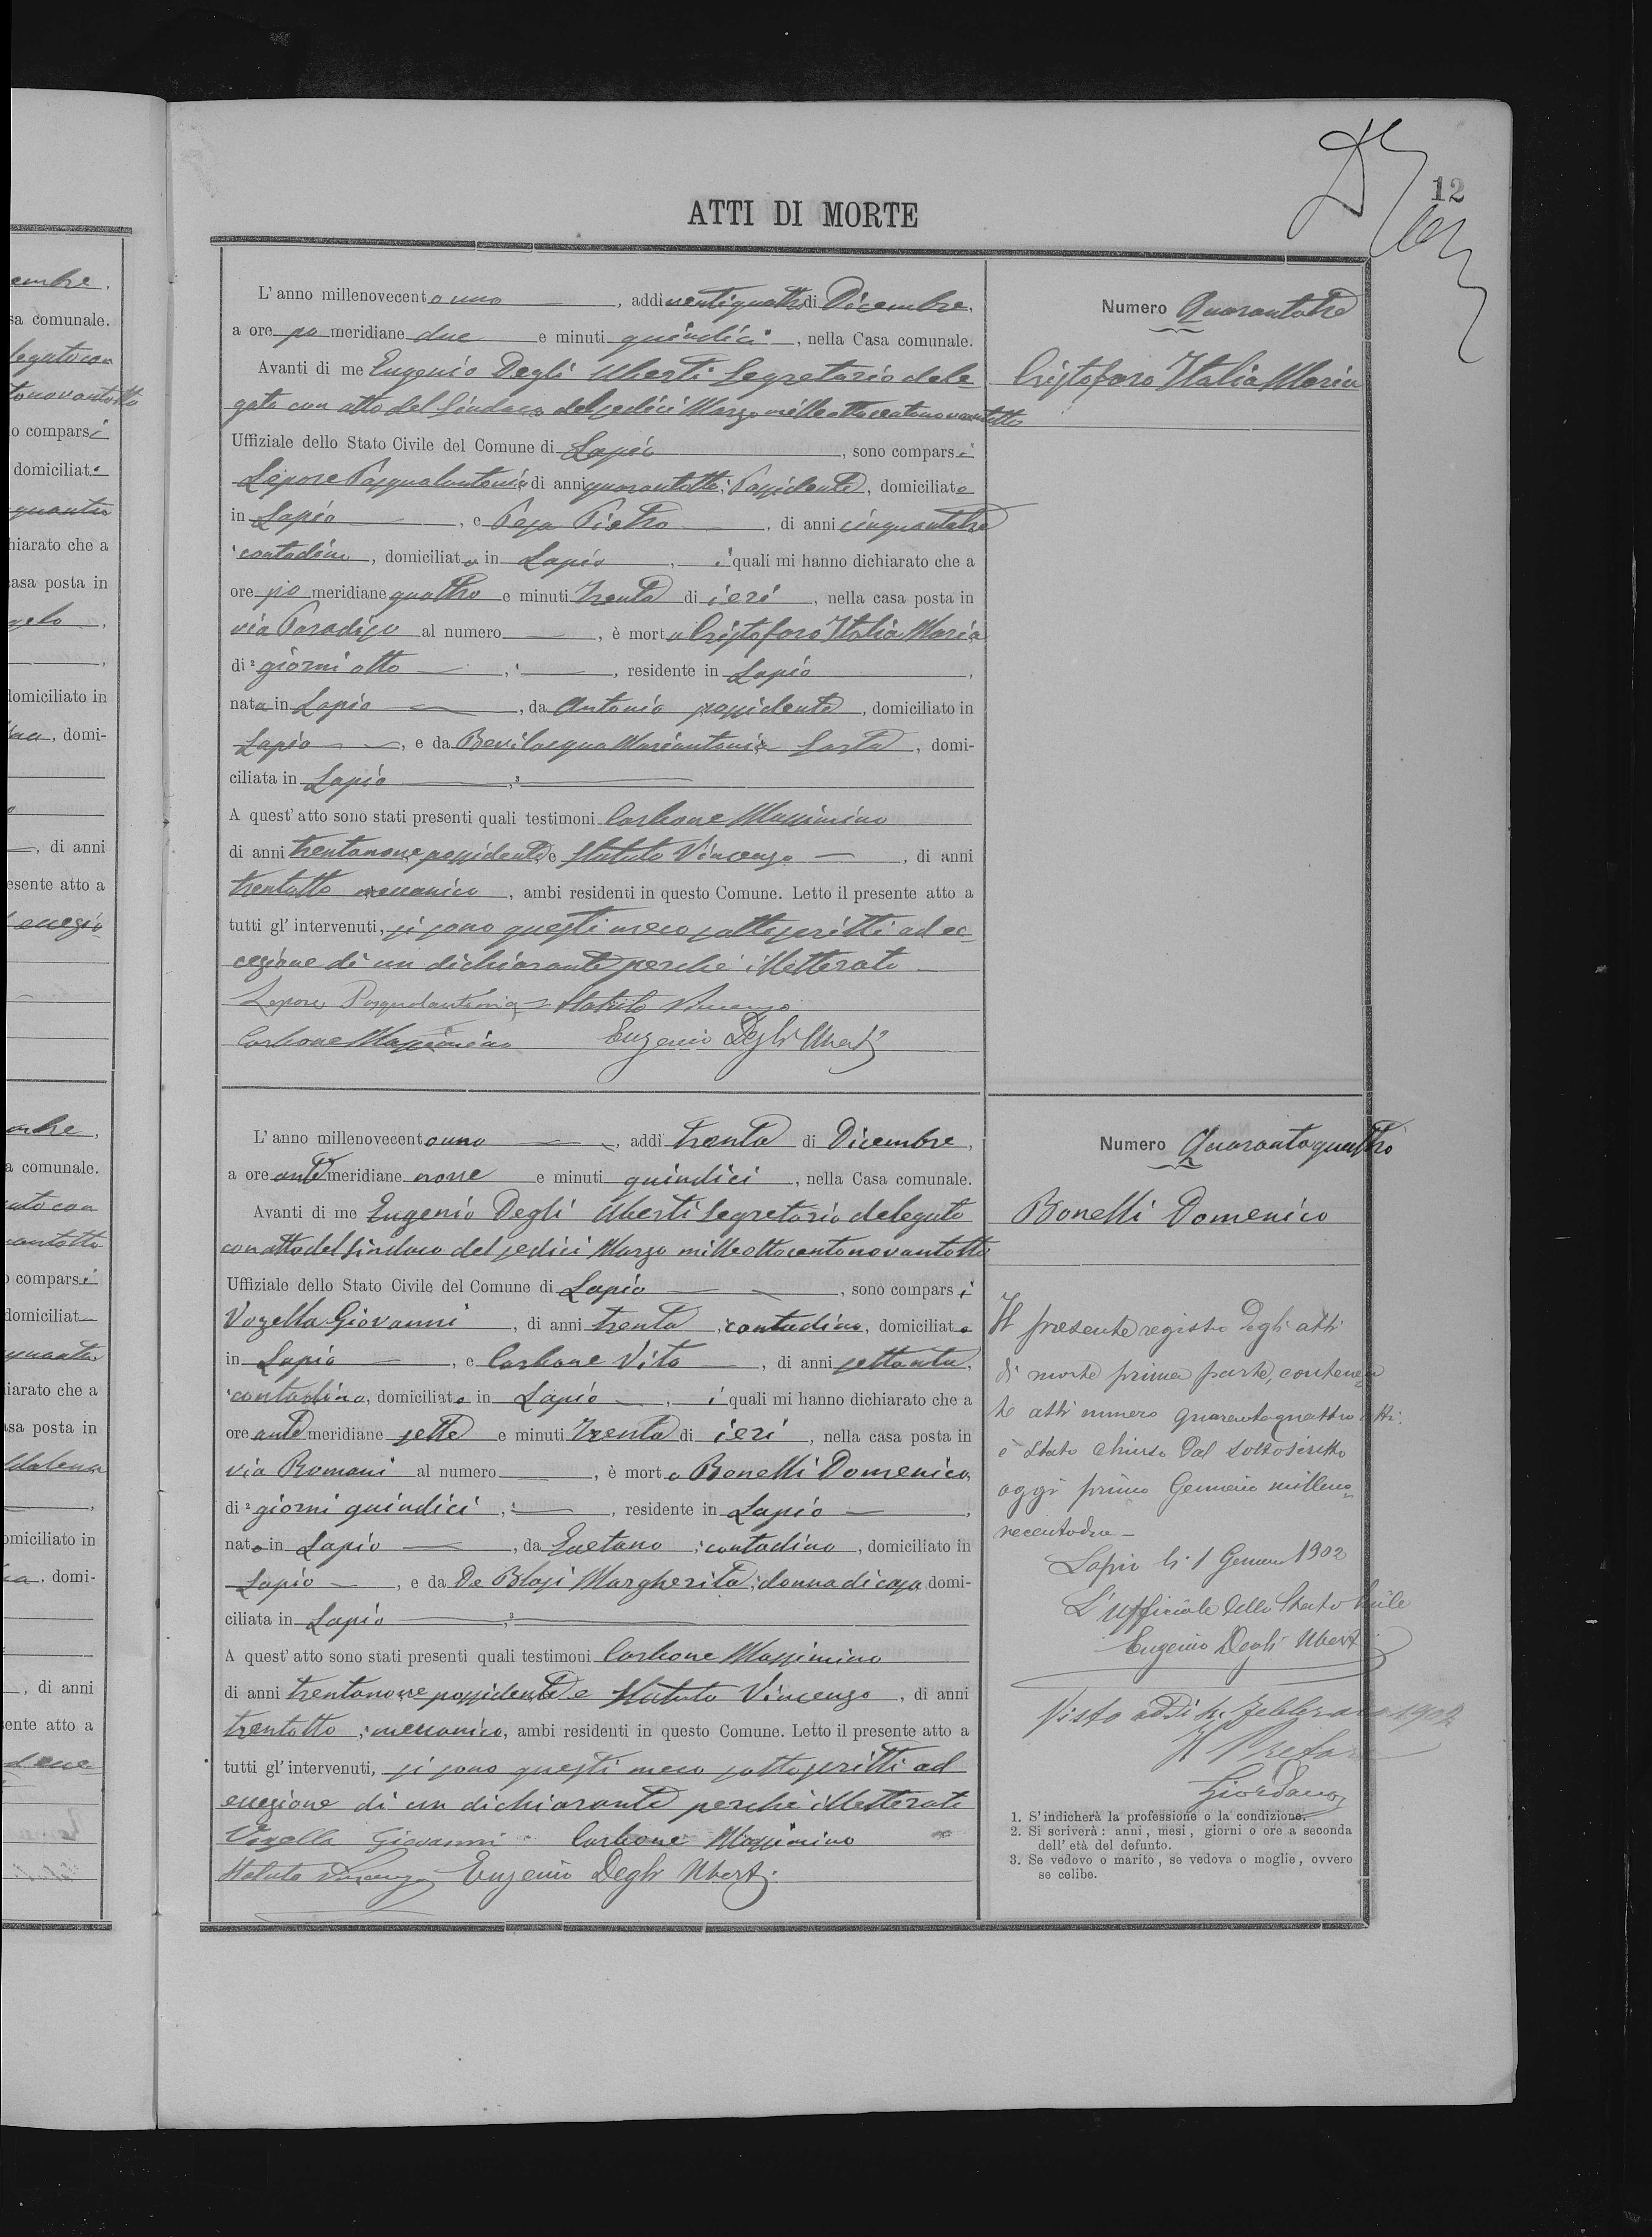 12
ATTI DI MORTE
L'anno millenovecentouno, addì ventiquattro di Dicembre,
a ore po meridiane due e minuti quindici, nella Casa comunale.
Avanti di me Eugenio Degli Uberti Segretario dele
gato con atto del Sindaco del sedici Marzo milleottocentonovantotto
Uffiziale dello Stato Civile del Comune di Lapio, sono comparsi
Lepore Pasqualantonio, di anni quarantotto, Possidente, domiciliato
in Lapio, e Pepa Pietro, di anni cinquantatre
contadino, domiciliato in Lapio, i quali mi hanno dichiarato che a
ore po meridiane quattro e minuti trenta di ieri, nella casa posta in
via Paradiso al numero, è morta Cristofaro Italia Maria
di giorni otto, residente in Lapio,
nata in Lapio, da Antonio possidente, domiciliato in
Lapio, e da Bevilacqua Mariantonia Sarta, domi-
ciliata in Lapio
A quest'atto sono stati presenti quali testimoni Carbone Massimino
di anni trentanove possidente e Statuto Vincenzo, di anni
trentotto meccanico, ambi residenti in questo Comune. Letto il presente atto a
tutti gl'intervenuti, si sono questi meco sottoscritti ad ec-
cezione di un dichiarante perché illetterato
Lepore Pasqualantonio Statuto Vincenzo
Carbone Massimino Eugenio Degli Uberti
Numero Quarantatre
Cristofaro Italia Maria
L'anno millenovecentouno, addì trenta di Dicembre,
a ore antimeridiane nove e minuti quindici, nella Casa comunale.
Avanti di me Eugenio Degli Uberti Segretario delegato
con atto del Sindaco del sedici Marzo milleottocentonovantotto
Uffiziale dello Stato Civile del Comune di Lapio, sono comparsi
Vozella Giovanni, di anni trenta, contadino, domiciliato
in Lapio, e Carbone Vito, di anni settanta,
contadino, domiciliato in Lapio, i quali mi hanno dichiarato che a
ore antemeridiane sette e minuti trenta di ieri, nella casa posta in
via Romani al numero, è morto Bonelli Domenico,
di giorni quindici, residente in Lapio,
nato in Lapio, da Gaetano, contadino, domiciliato in
Lapio, e da De Blasi Margherita, donna di casa, domi-
ciliata in Lapio
A quest'atto sono stati presenti quali testimoni Carbone Massimino
di anni trentanove possidente e Statuto Vincenzo, di anni
trentotto, meccanico, ambi residenti in questo Comune. Letto il presente atto a
tutti gl'intervenuti, si sono questi meco sottoscritti ad
eccezione di un dichiarante perché illetterato
Vozella Giovanni Carbone Massimino
Statuto Vincenzo Eugenio Degli Uberti
Numero Quarantaquattro
Bonelli Domenico
Il presente registro degli atti
di morte prima parte, contenen
te atti numero quarantaquattro atti
è stato chiuso dal sottoscritto
oggi primo Gennaio milleno
vecentodue
Lapio li 1 Gennaio 1902
L'Ufficiale dello Stato Civile
Eugenio Degli Uberti
Visto addì Febbraio 1902
Il Pretore
Giordano
1. S'indicherà la professione o la condizione.
2. Si scriverà: anni, mesi, giorni o ore a seconda
dell'età del defunto.
3. Se vedovo o marito, se vedova o moglie, ovvero
se celibe.